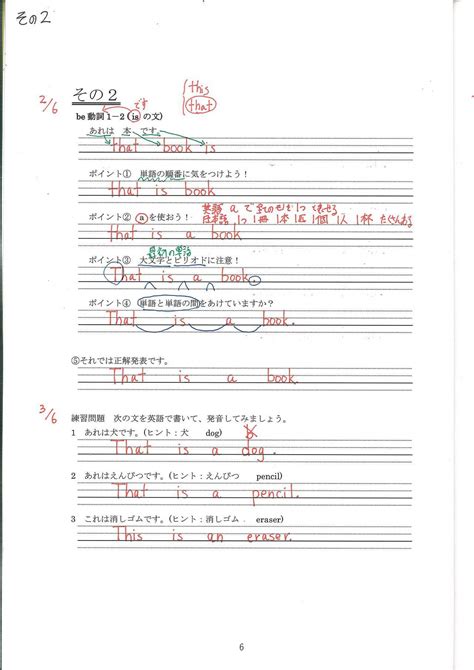 その2
2/6
その2
です
this
that
be動詞1－2（isの文）
あれは 本 です。
that book is
ポイント① 単語の順番に気をつけよう！
that is book
英語 a で
日本語 1つ 1冊 1本 1匹 1個 1人 1杯 たくさんある
ポイント② aを使おう！
that is a book
最初の単語
ポイント③ 大文字とピリオドに注意！
That is a book.
ポイント④ 単語と単語の間をあけていますか？
That is a book.
⑤それでは正解発表です。
That is a book.
3/6
練習問題 次の文を英語で書いて、発音してみましょう。
1 あれは犬です。(ヒント：犬 dog)
That is a dog.
2 あれはえんぴつです。(ヒント：えんぴつ pencil)
That is a pencil.
3 これは消しゴムです。(ヒント：消しゴム eraser)
This is an eraser.
6